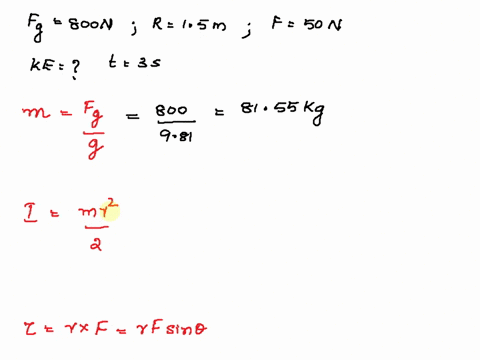 Fg = 800N ; R = 1.5m ; F = 50N
KE = ? t = 3s
m = Fg/g = 800/9.81 = 81.55 Kg
I = mr²/2
τ = r × F = rF sinθ